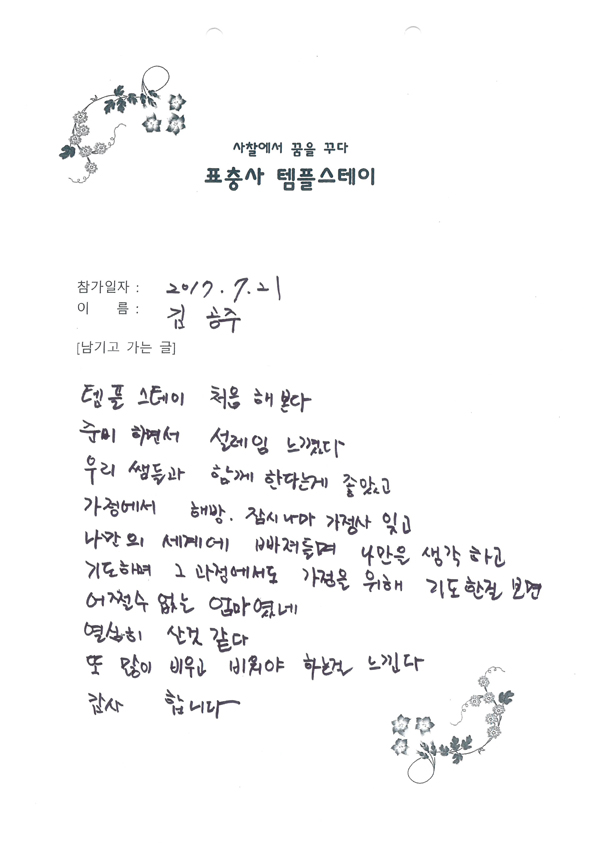 사찰에서 꿈을 꾸다
표충사 템플스테이
참가일자 : 2017. 7. 21
이 름 : 김 공주
[남기고 가는 글]
템플 스테이 처음 해 본다
준비 하면서 설레임 느꼈다
우리 쌤들과 함께 한다는게 좋았고
가정에서 해방. 잠시나마 가정사 잊고
나만의 세계에 빠져들며 나만을 생각 하고
기도하며 그 과정에서도 가정을 위해 기도한걸 보면
어쩔수 없는 엄마였네
열심히 산것 같다
또 많이 비우고 비워야 하는걸 느낀다
감사 합니다